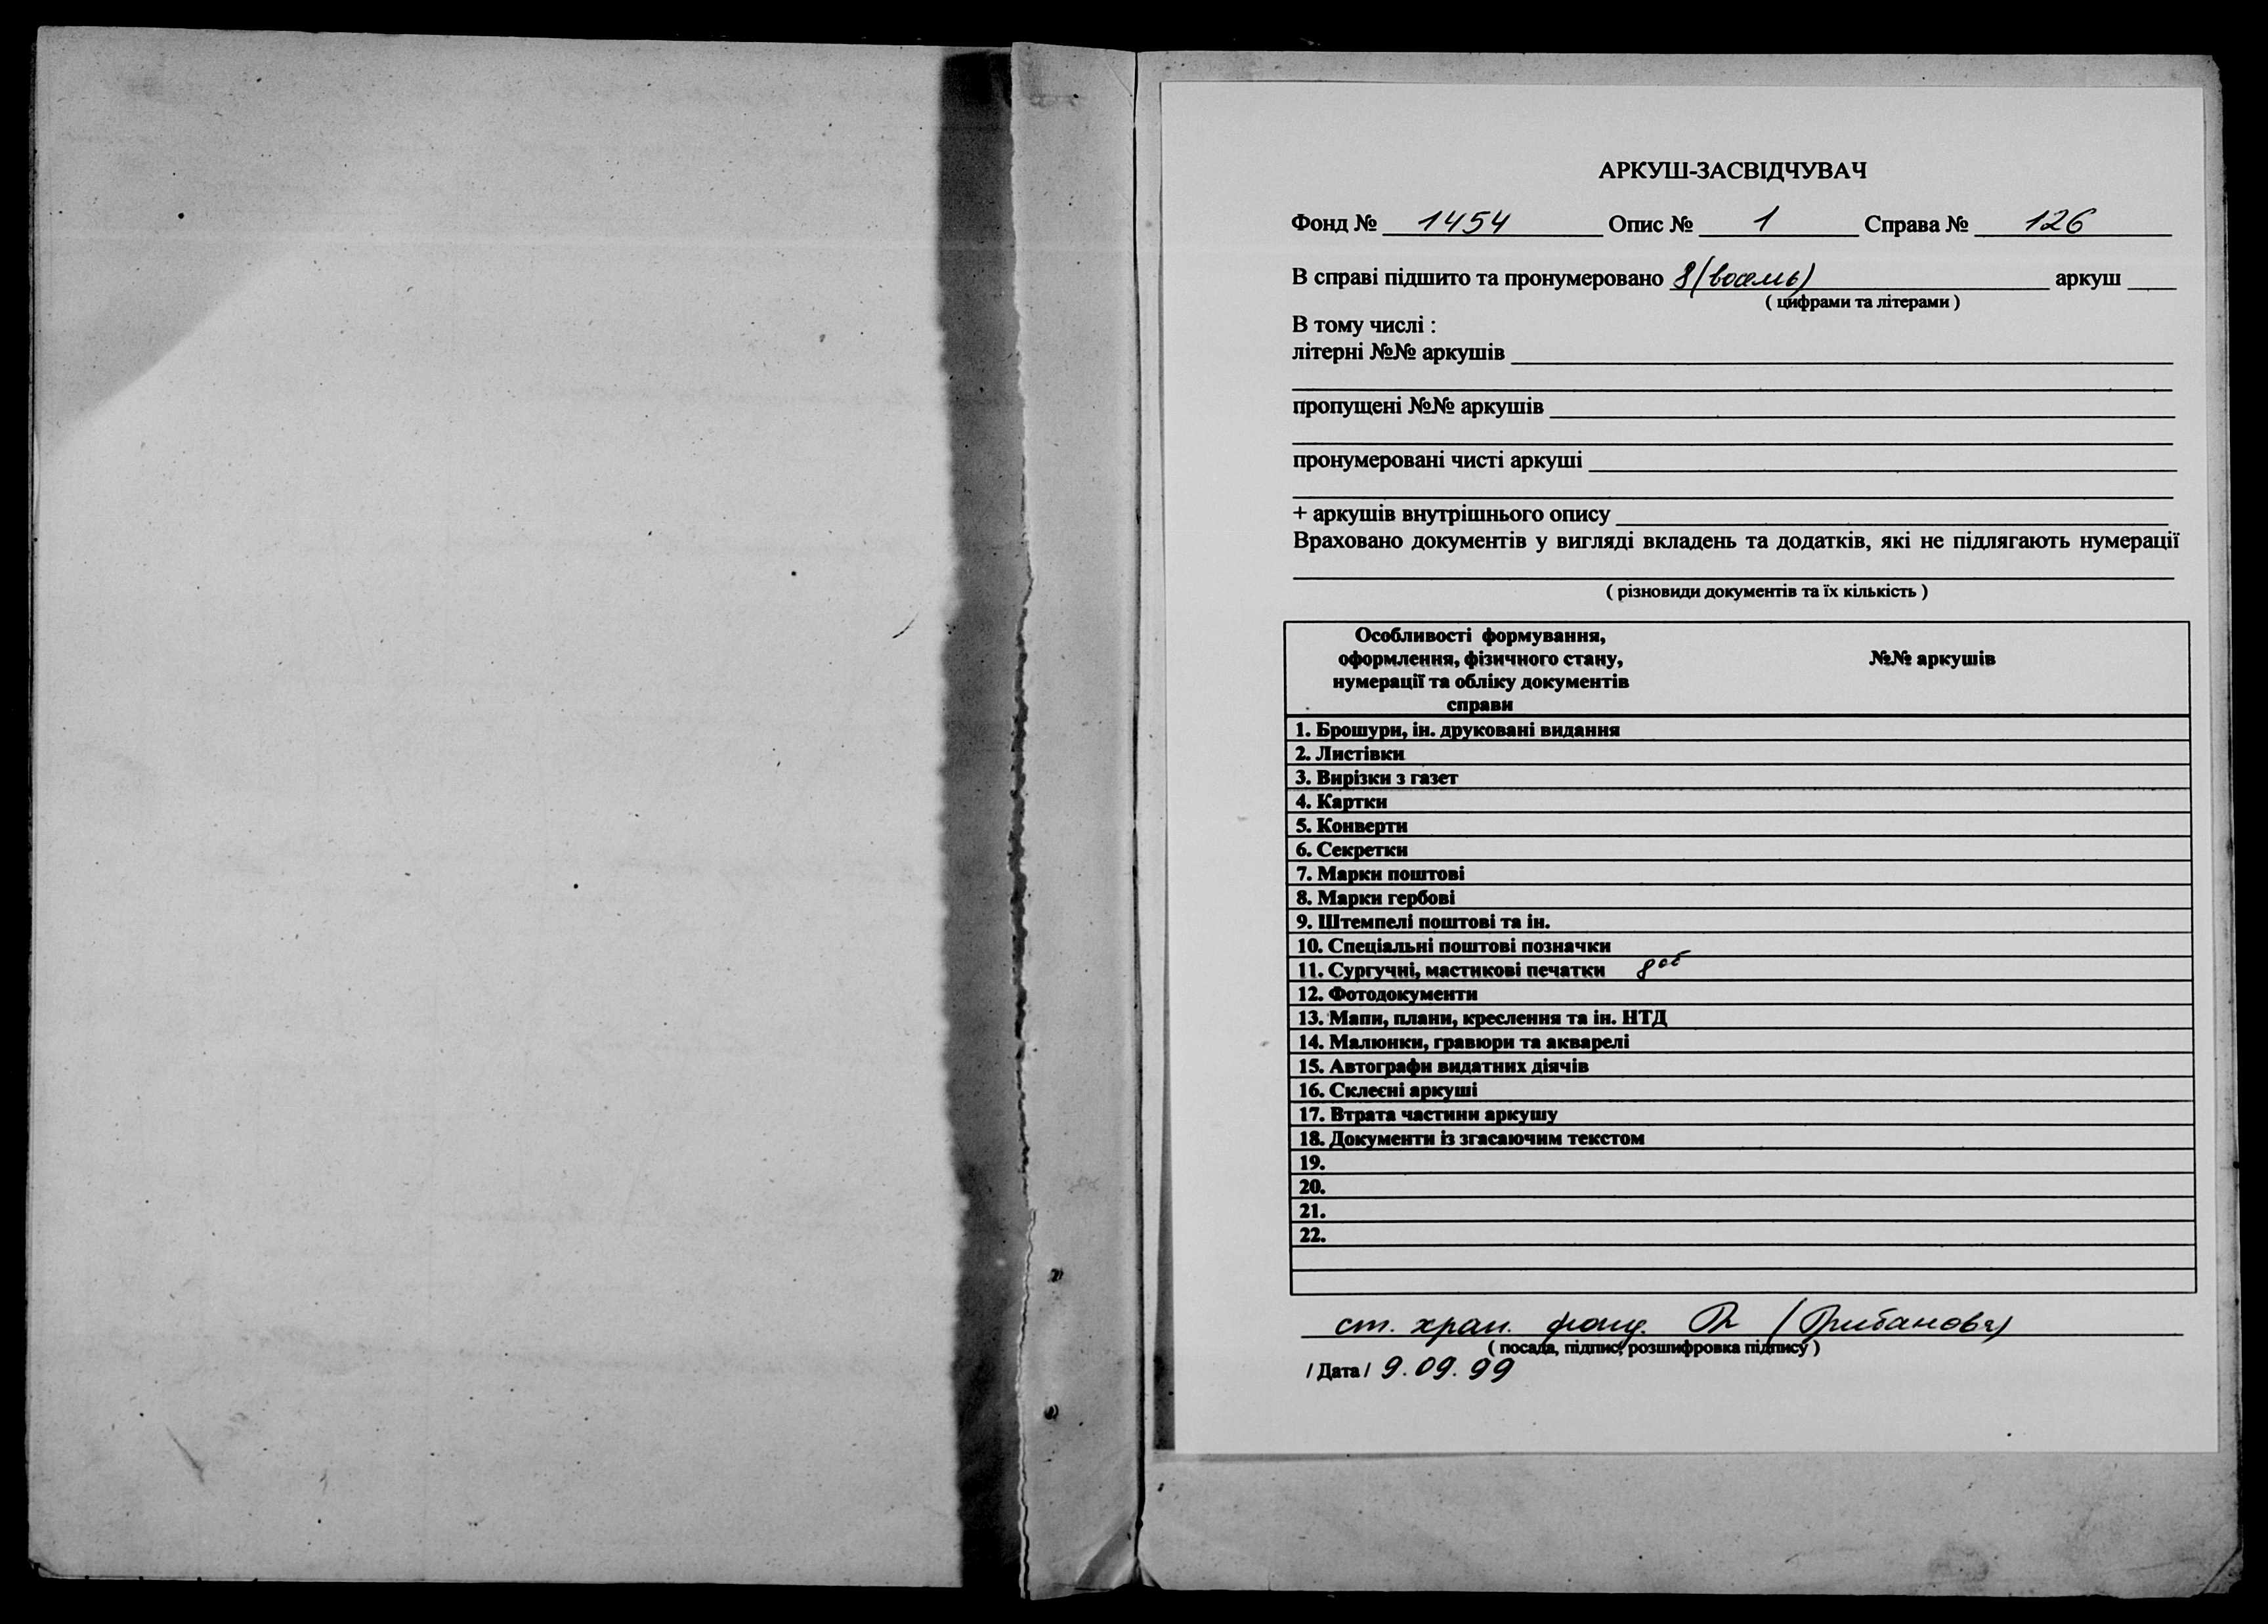 АРКУШ-ЗАСВІДЧУВАЧ
Фонд № 1454 Опис № 1 Справа № 126
В справі підшито та пронумеровано 8 (восемь) аркуш
( цифрами та літерами )
В тому числі :
літерні №№ аркушів
пропущені №№ аркушів
пронумеровані чисті аркуші
+ аркушів внутрішнього опису
Враховано документів у вигляді вкладень та додатків, які не підлягають нумерації
( різновиди документів та їх кількість )
Особливості формування,
оформлення, фізичного стану,
нумерації та обліку документів
справи
№№ аркушів
1. Брошури, ін. друковані видання
2. Листівки
3. Вирізки з газет
4. Картки
5. Конверти
6. Секретки
7. Марки поштові
8. Марки гербові
9. Штемпелі поштові та ін.
10. Спеціальні поштові позначки
11. Сургучні, мастикові печатки 8об
12. Фотодокументи
13. Мапи, плани, креслення та ін. НТД
14. Малюнки, гравюри та акварелі
15. Автографи видатних діячів
16. Склеєні аркуші
17. Втрата частини аркушу
18. Документи із згасаючим текстом
19.
20.
21.
22.
ст. хран. фонд.
( посада, підпис, розшифровка підпису )
/ Дата / 9.09.99